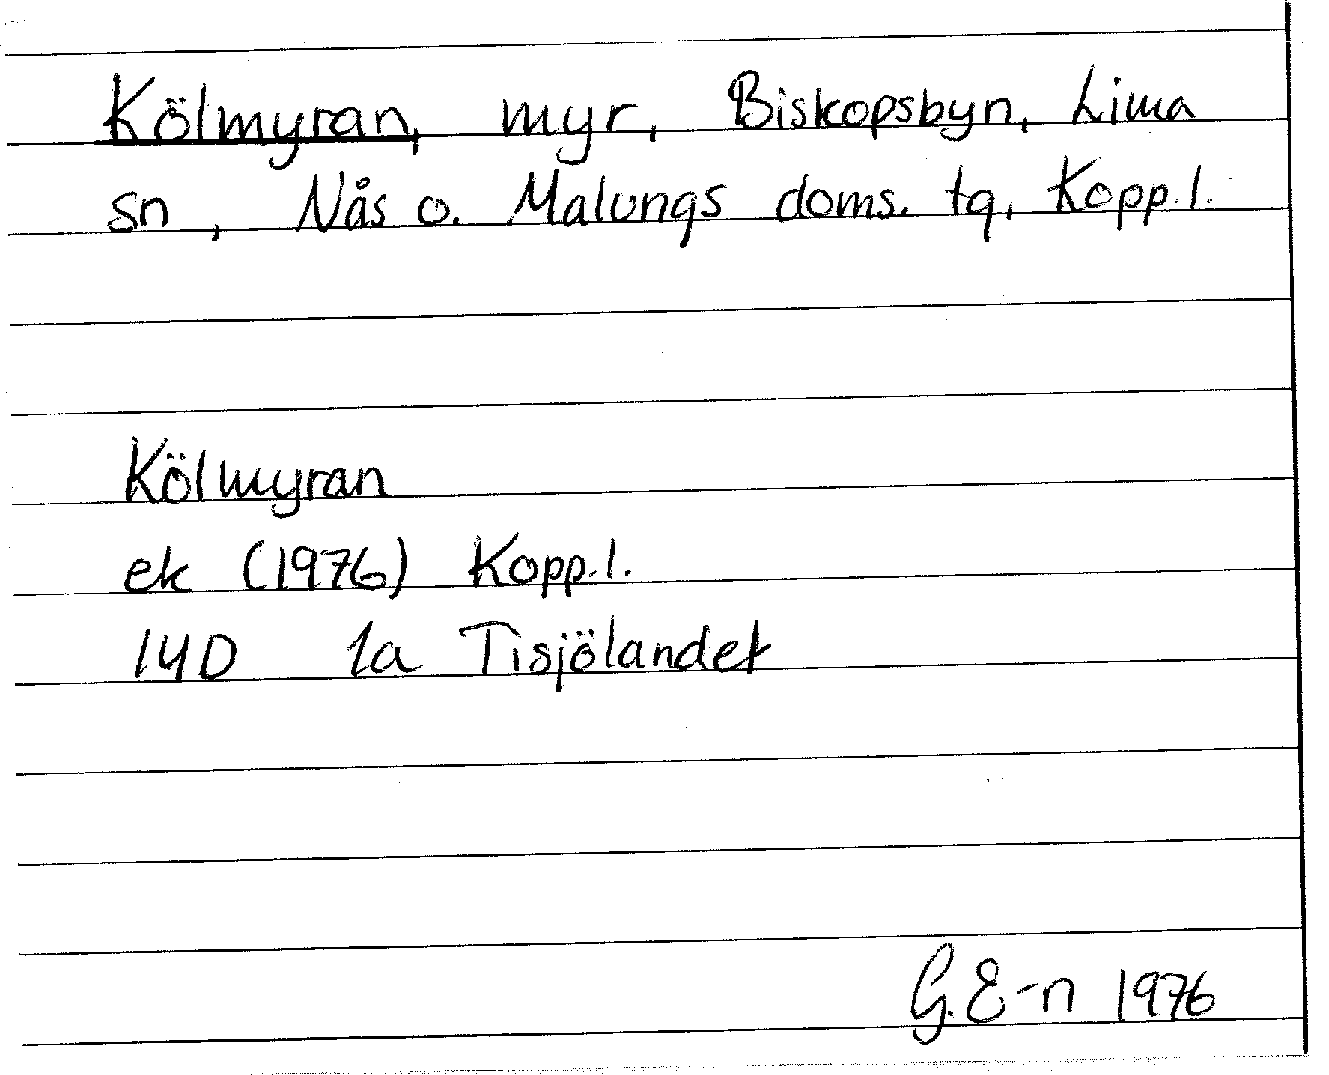 Kölmyran, myr, Biskopsbyn, Lima
sn, Nås o. Malungs doms. tg, Kopp.l.
Kölmyran
ek (1976) Kopp.l.
14D 1a Tisjölandet
G.E-n 1976